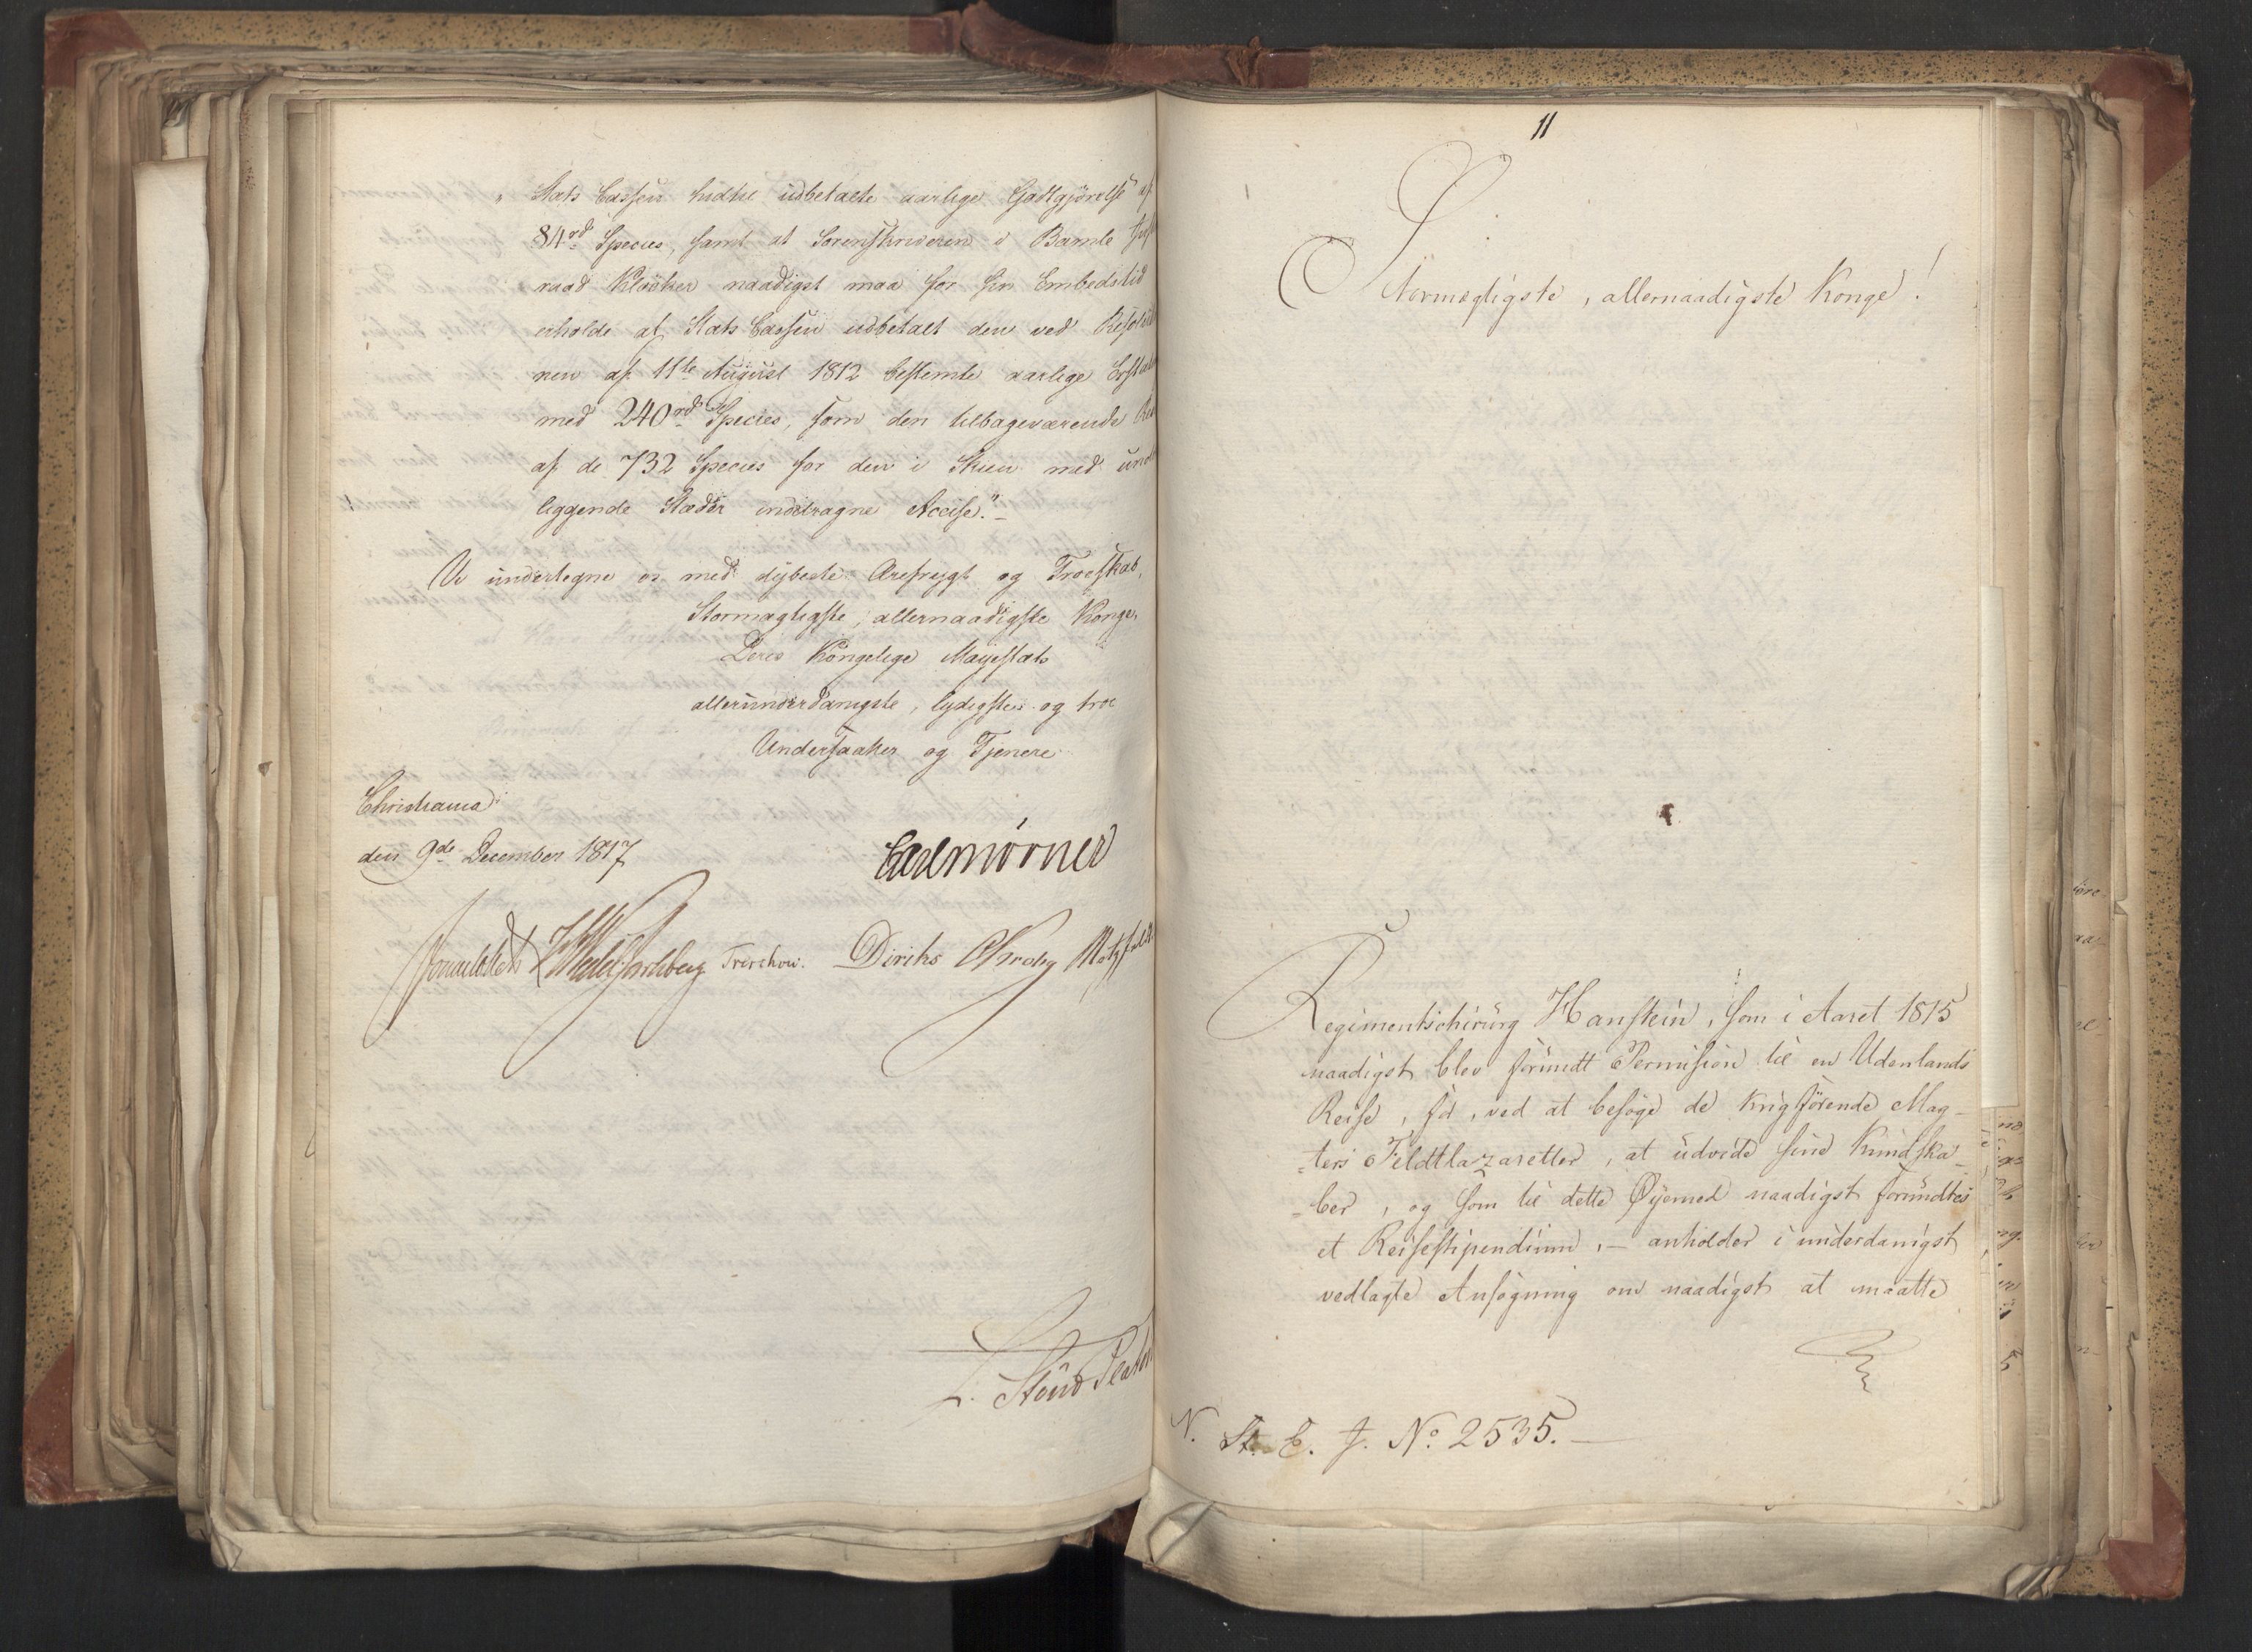 " Stats Cassen hidtil udbetalte aarlige Godtgjörelse" af
84rd Species, samt at Sorenskriveren i Bamle
raad Klöcker naadigst maa for sin Embedstid
erholde af Stats Cassen udbetalt den ved
nen af 11te August 1812 bestemte aarlige
med 240rd Species, som den tilbageværende
af de 732 Species for den i Skien med
liggende Stæder inddragne Accise."-
Vi undertegne os med dybeste Ærefrygt og Troeskab,
Stormægtigste, allernaadigste Konge,
Deres Kongelige Majestæts
allerunderdanigste, lydigste og troe
Undersaatter og Tjenere
Christiania
den 9de December 1817
Carl Mörner
Sommerhielm Wedel Jarlsberg Treschow. Diriks Krohg Motzfeldt
L. Stoud Platou
11
Stormægtigste, allernaadigste Konge!
Regimentschirurg Hanstein, som i Aaret 1815
naadigst blev forundt Permission til en Udenlands
Reise, for, ved at besøge de krigførende Mag-
-ters Feldtlazaretter, at udvide sine Kundska-
-ber, og som til dette Øyemed naadigst forundtes
et Reisestipendium,- anholder i underdanigst
vedlagte Ansøgning om naadigst at maatte
N. St. C. J. No. 2535.-